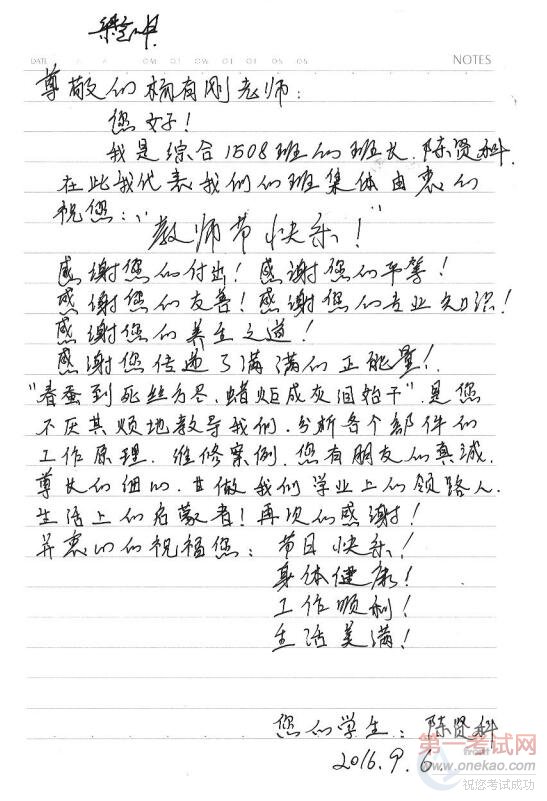 DATE
NOTES
尊敬的杨有刚老师:
您好!
我是综合1508班的班长.陈贤科.
在此我代表我们的班集体由衷的
祝您:"
教师节快乐!"
感谢您的付出!感谢您的平等!
感谢您的友善!感谢您的专业知识!
感谢您的养生之道!
感谢您传递了满满的正能量!
"春蚕到死丝方尽.蜡炬成灰泪始干".是您
不厌其烦地教导我们.分析各个部件的
工作原理.维修案例.您有朋友的真诚.
尊长的细心.甘做我们学业上的领路人.
生活上的启蒙者!再次的感谢!
并衷心的祝福您:节日快乐!
身体健康!
工作顺利!
生活美满!
您的学生:陈贤科
2016.9.6
第一考试网
www.onekao.com
祝您考试成功